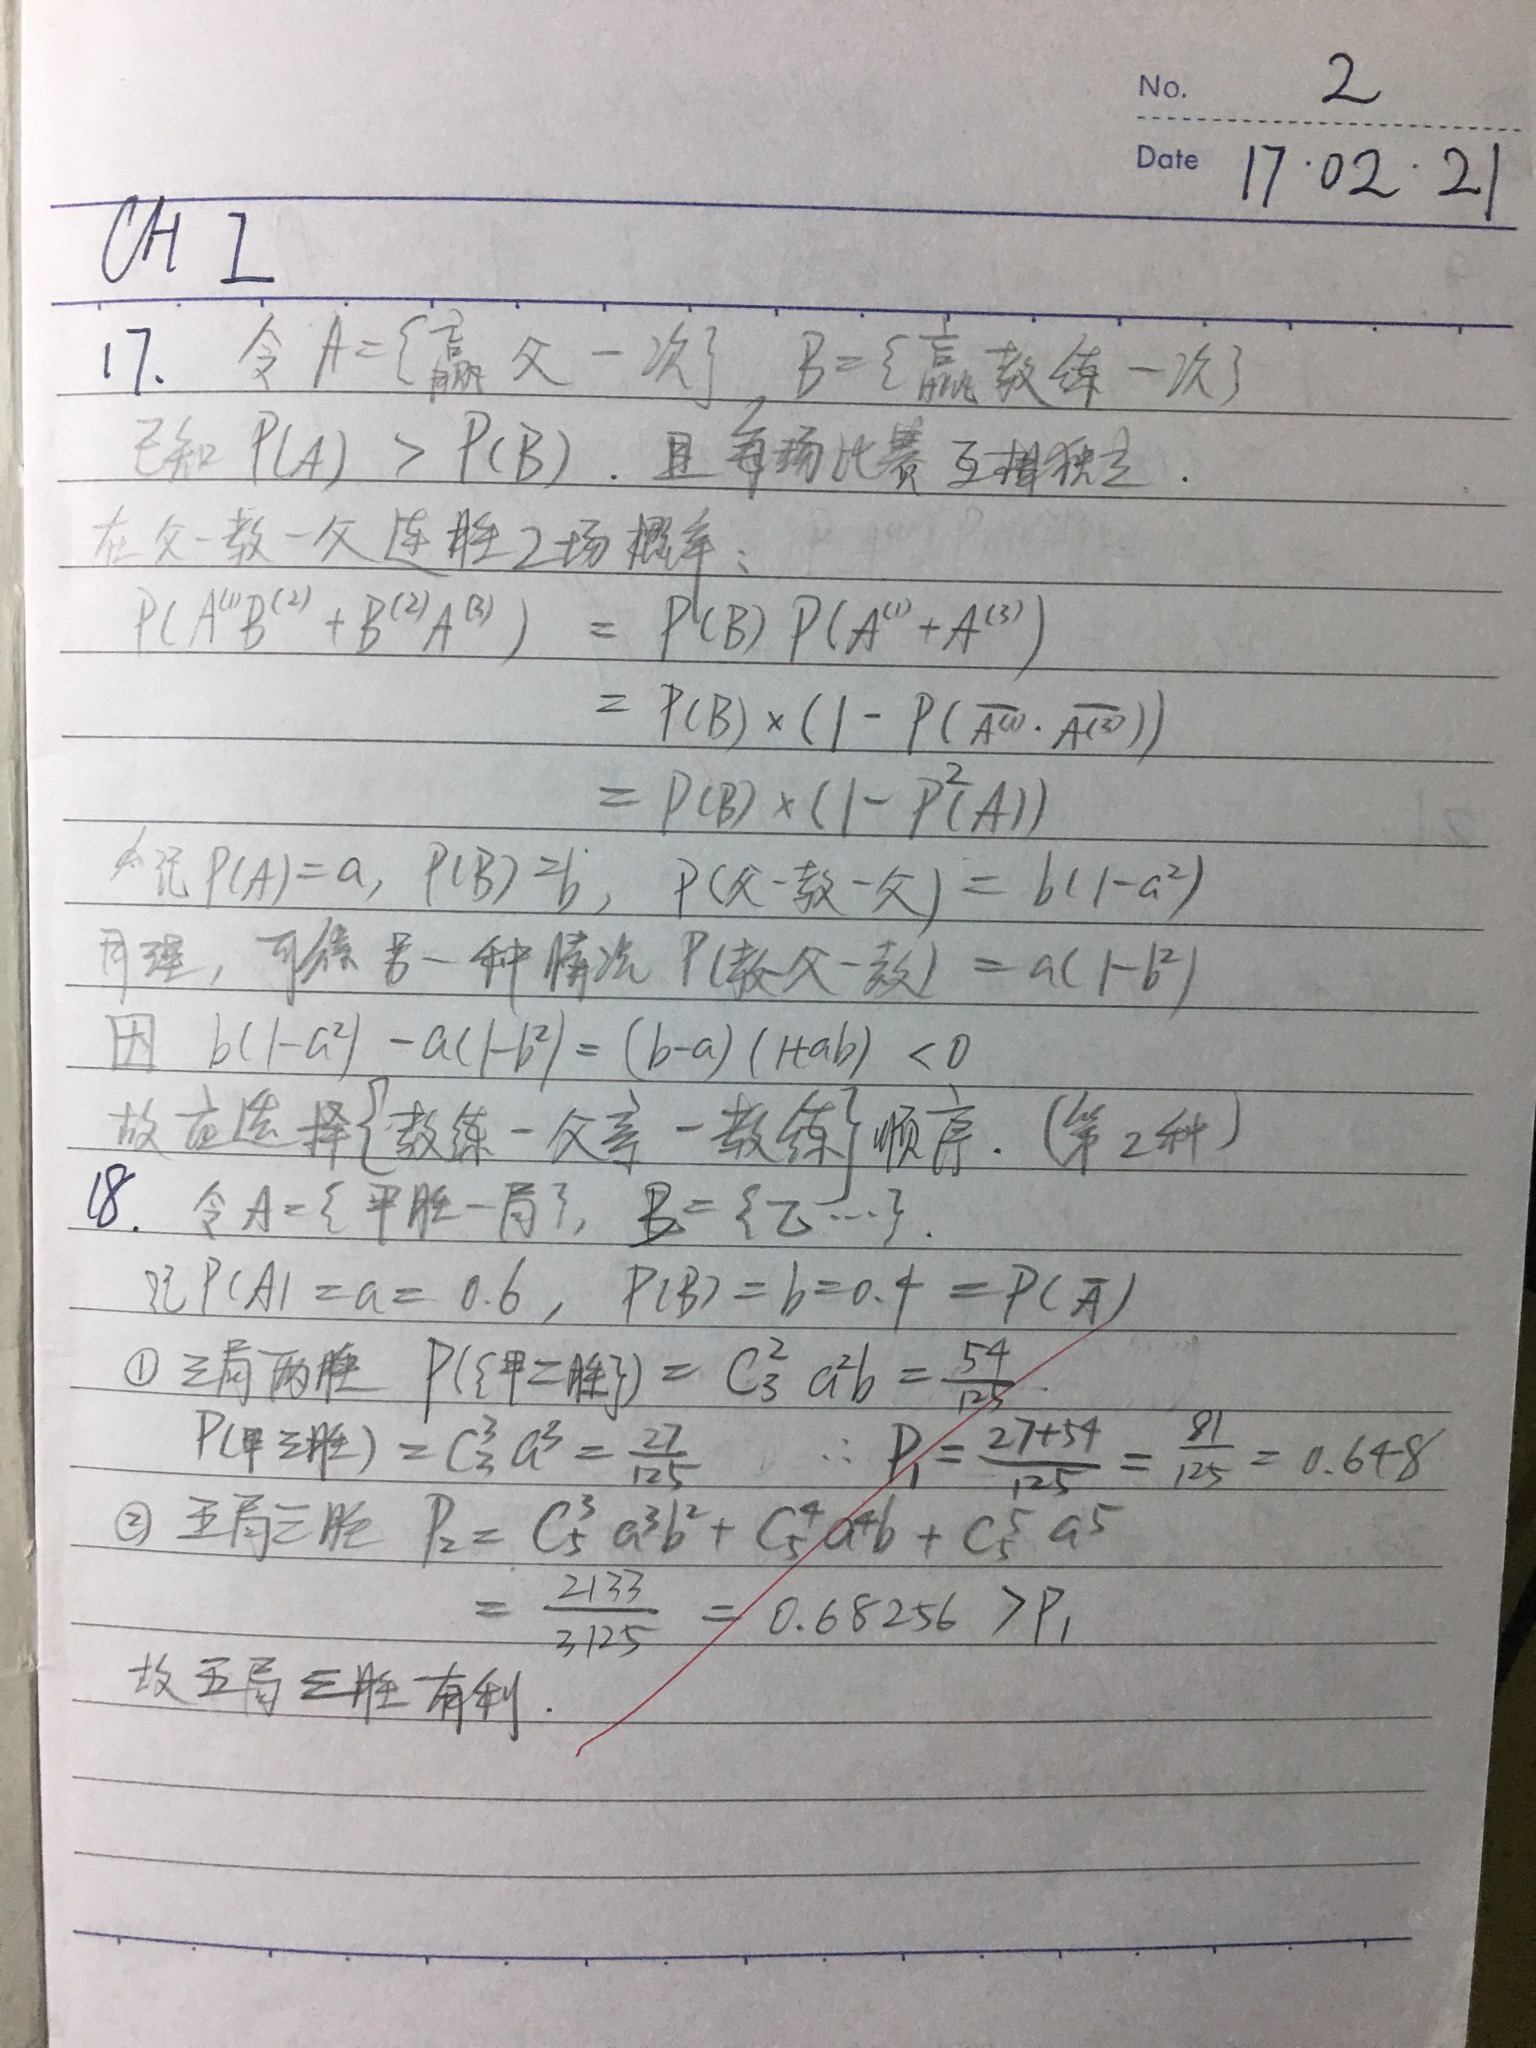 No. 2
Date 17·02·21
CH 1
17. 令 A={赢父一次}, B={赢教练一次}
已知 P(A) > P(B). 且每场比赛互相独立.
在父-教-父连胜2场概率:
P(A⁽¹⁾B⁽²⁾+B⁽²⁾A⁽³⁾) = P(B) P(A⁽¹⁾+A⁽³⁾)
= P(B)×(1-P(A̅⁽¹⁾·A̅⁽³⁾))
= P(B)×(1-P²(A))
记P(A)=a, P(B)=b, P(父-教-父) = b(1-a²)
同理, 可得另一种情况 P(教父-教) = a(1-b²)
因 b(1-a²) -a(1-b²)=(b-a)(1+ab) <0
故应选择{教练-父亲-教练}顺序. (第2种)
18. 令A={甲胜一局}, B={乙…}.
记P(A)=a= 0.6, P(B)=b=0.4 =P(A̅)
① 三局两胜 P({甲二胜}) = C₃² a²b = 54/125.
P(甲三胜) = C₃³ a³ = 27/125 ∴ P₁ = (27+54)/125 = 81/125 = 0.648
② 五局三胜 P₂ = C₅³ a³b² + C₅⁴ a⁴b + C₅⁵ a⁵
= 2133/3125 = 0.68256 >P₁
故五局三胜有利.